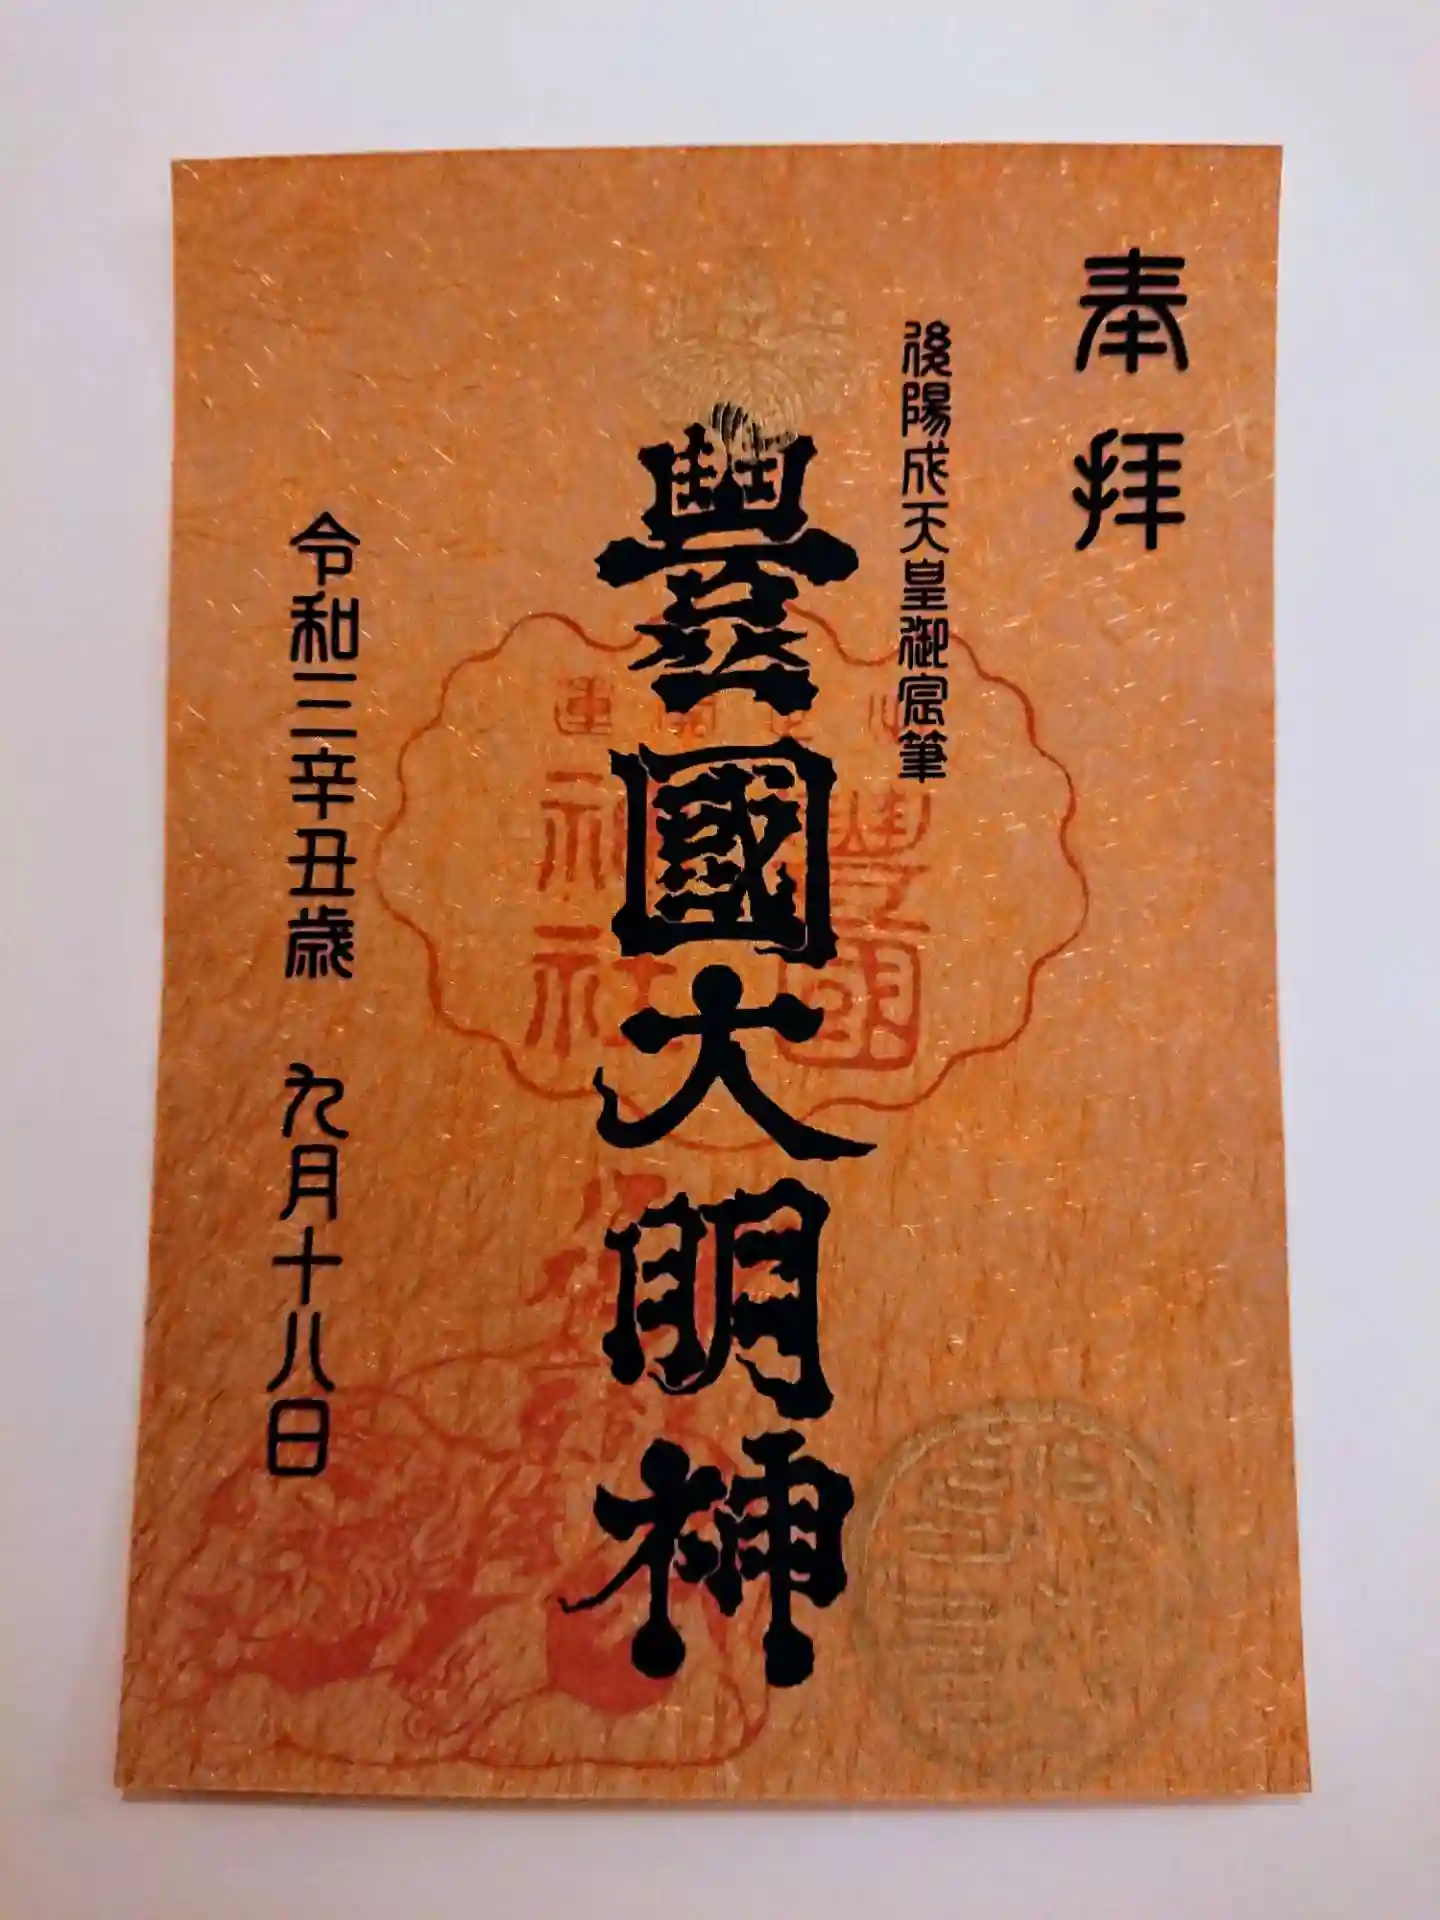 奉拝
後陽成天皇御宸筆
豐國大明神
令和三辛丑歳 九月十八日
豊國
神社